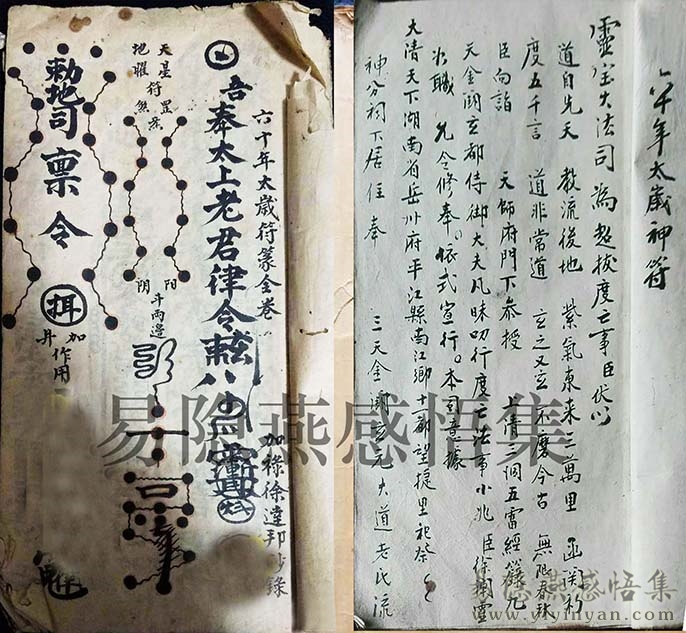 六十年太歲符篆全卷
吾奉太上老君律令
加祿徐達邦抄錄
天星符罡炁
地曜
陽
陰
斗兩邊
敕地司稟令
加
作用
六十年太歲神符
靈宝大法司為超拔度亡事臣伏以
道自先天 教流後地 紫氣東来三萬里 函関初
度五千言 道非常道 玄之又玄 不廢今古 無限春秋
臣向詣 天師府門下叅授 上清三洞五雷經籙九
天金闕玄都侍御大夫凡昧叨行度亡法事小兆臣徐
職 允令修奉。依式宣行。本司意據
大清天下湖南省岳州府平江縣南江鄉十一都望捷里祀奈
神分祠下居住奉 三天金闕 大道老氏流
易隐燕感悟集
易隐燕感悟集
www.yiyinyan.com